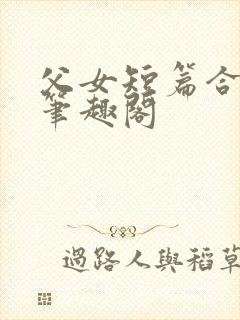 父女短篇合
筆趣閣
過路人與稻草